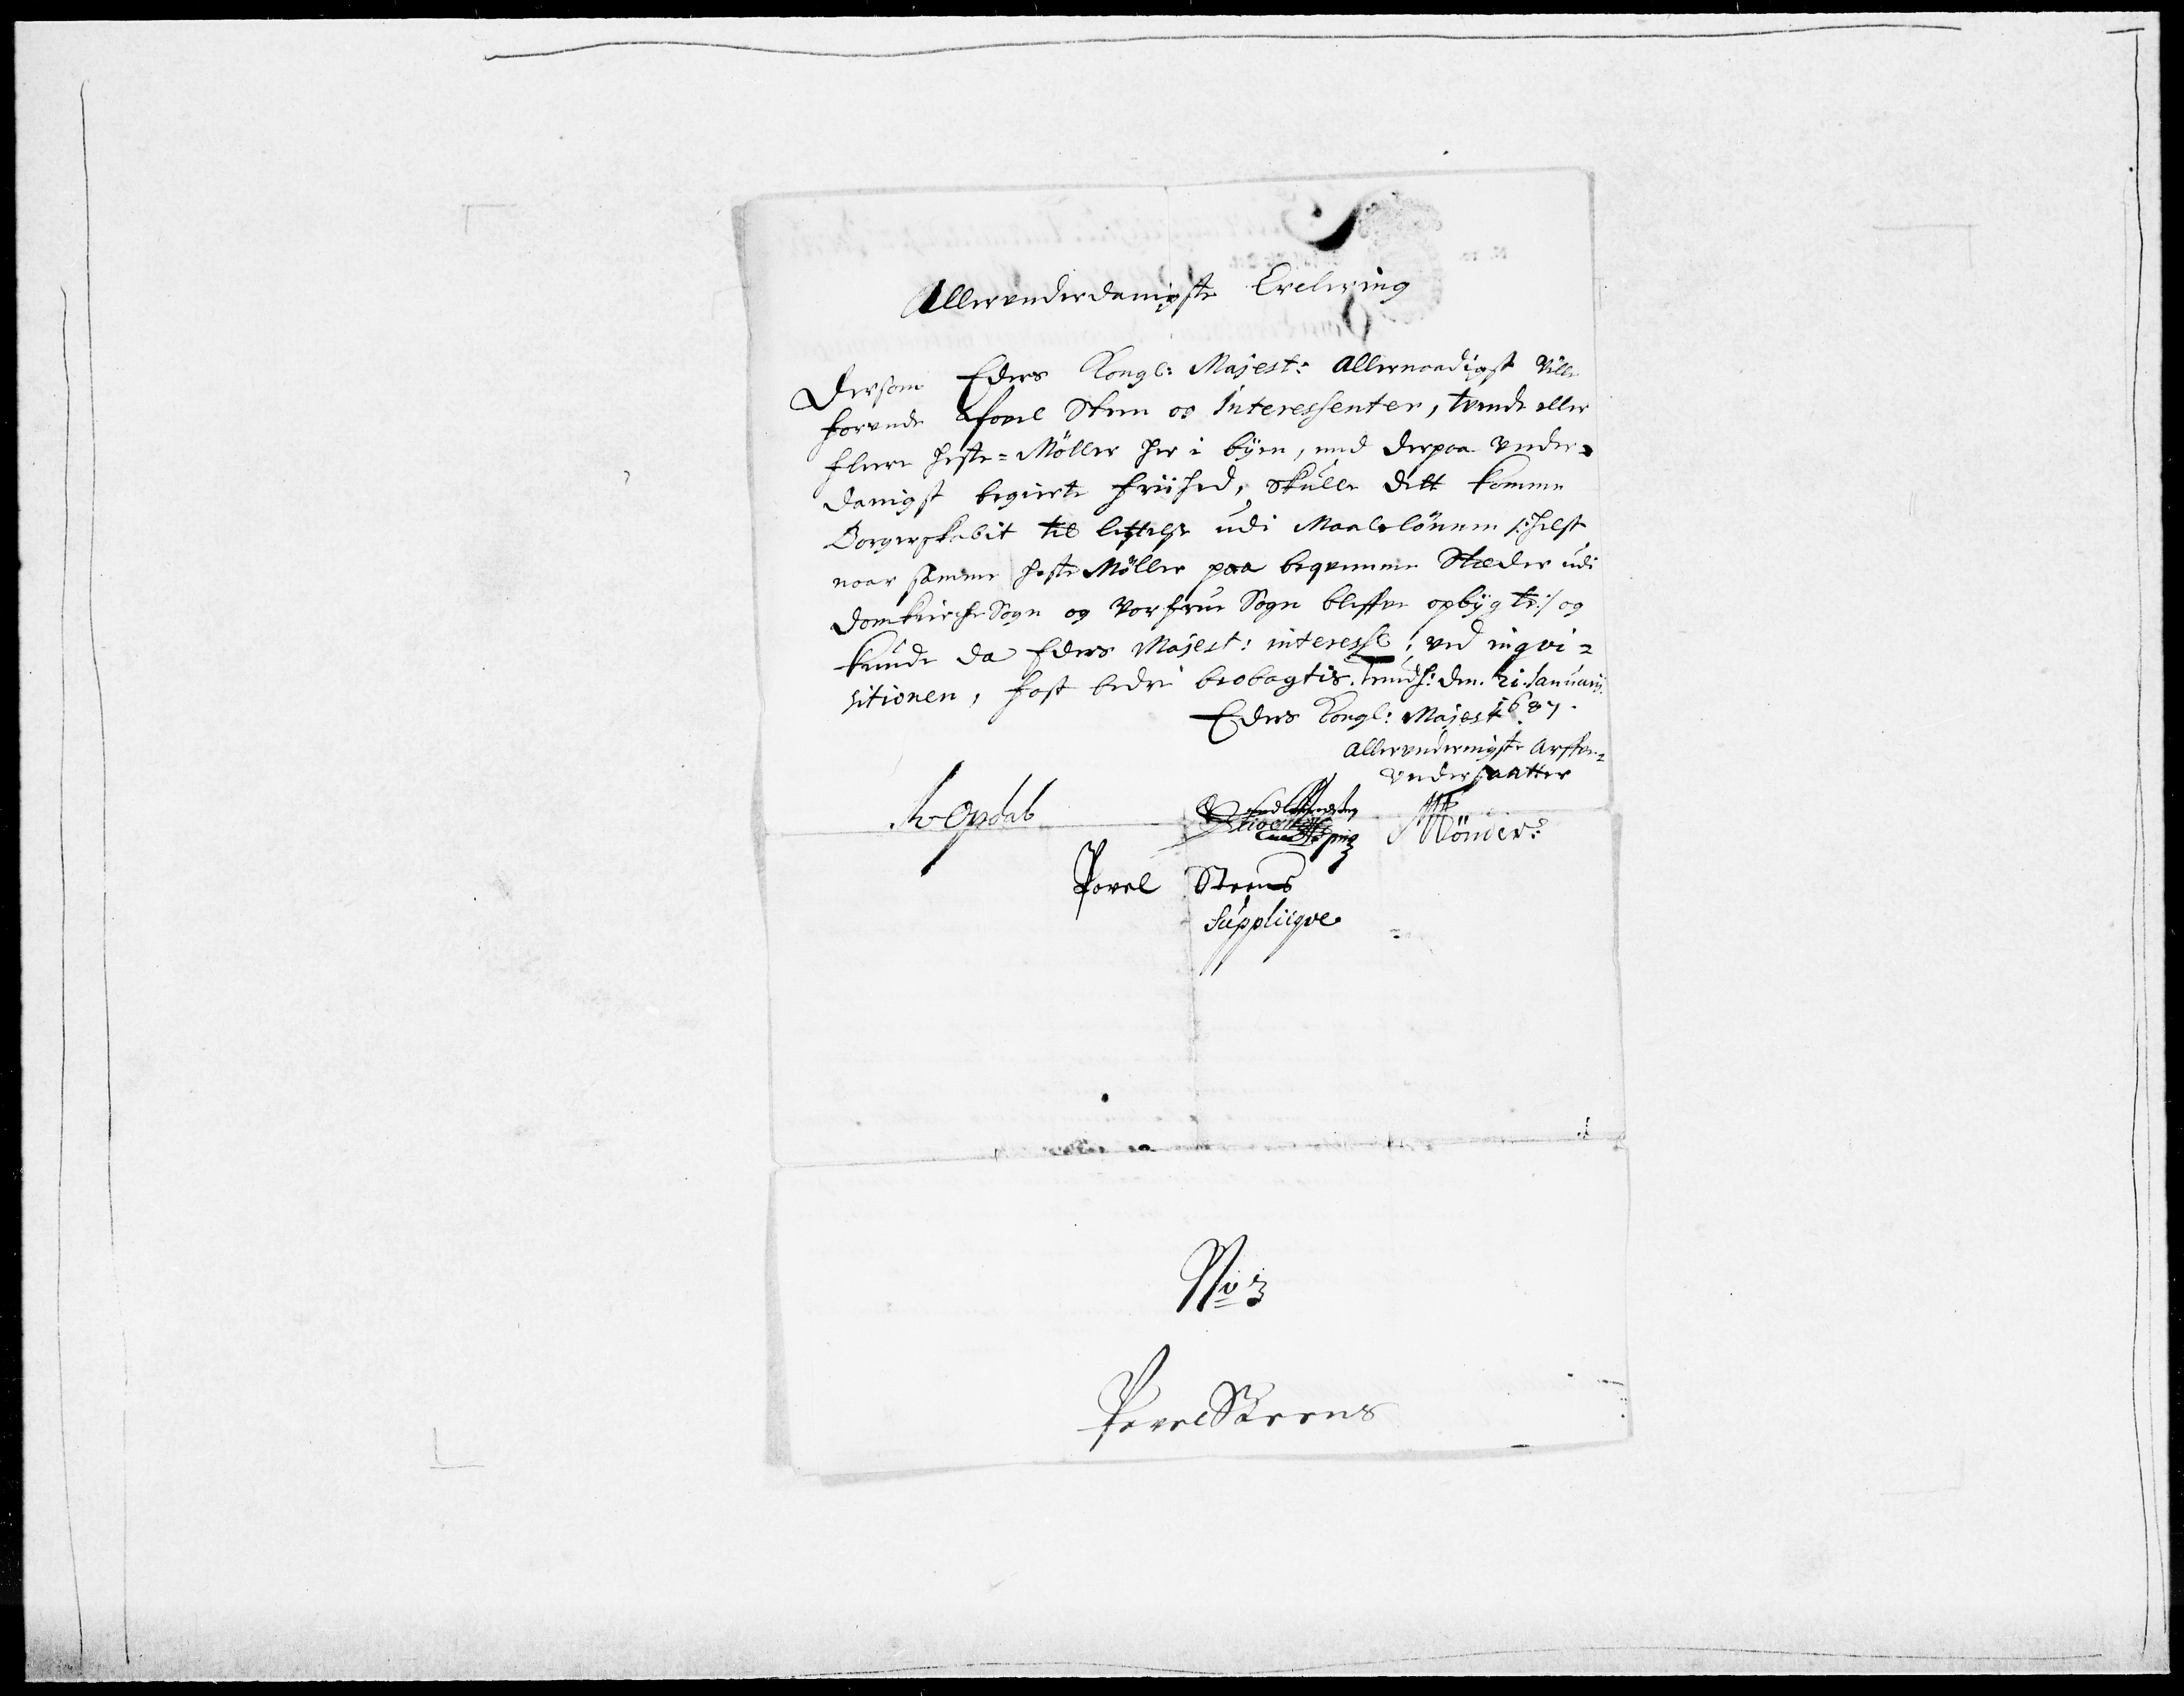 Allervnderdanigste Erclering
Dersom Eders Kongl: Majest: allernaadigst ville
forunde Povel Steen og Interessenter, tvende eller
fleere heste=Möller her i byen, med derpaa vnder=
danigst begierte friihed, skulle dett komme
Borgerskabit til lettelse udi Maalelönnen /:helst
naar samme heste Möller paa beqvemme Stæder udi
Domkirche Sogn og Vorfrue Sogn bleffve opbygte:/ og
kunde da Eders Majest: interesse, ved inqvi=
sitionen, best bedre beobagtis. den. 21. Januarij
1687.
Eders Kongl: Majest
allervnderdanigste Arffve=
vndersaatter
Opdal
Mönder:
Povel Steens
Supplicqve
No 3
Povel Steens